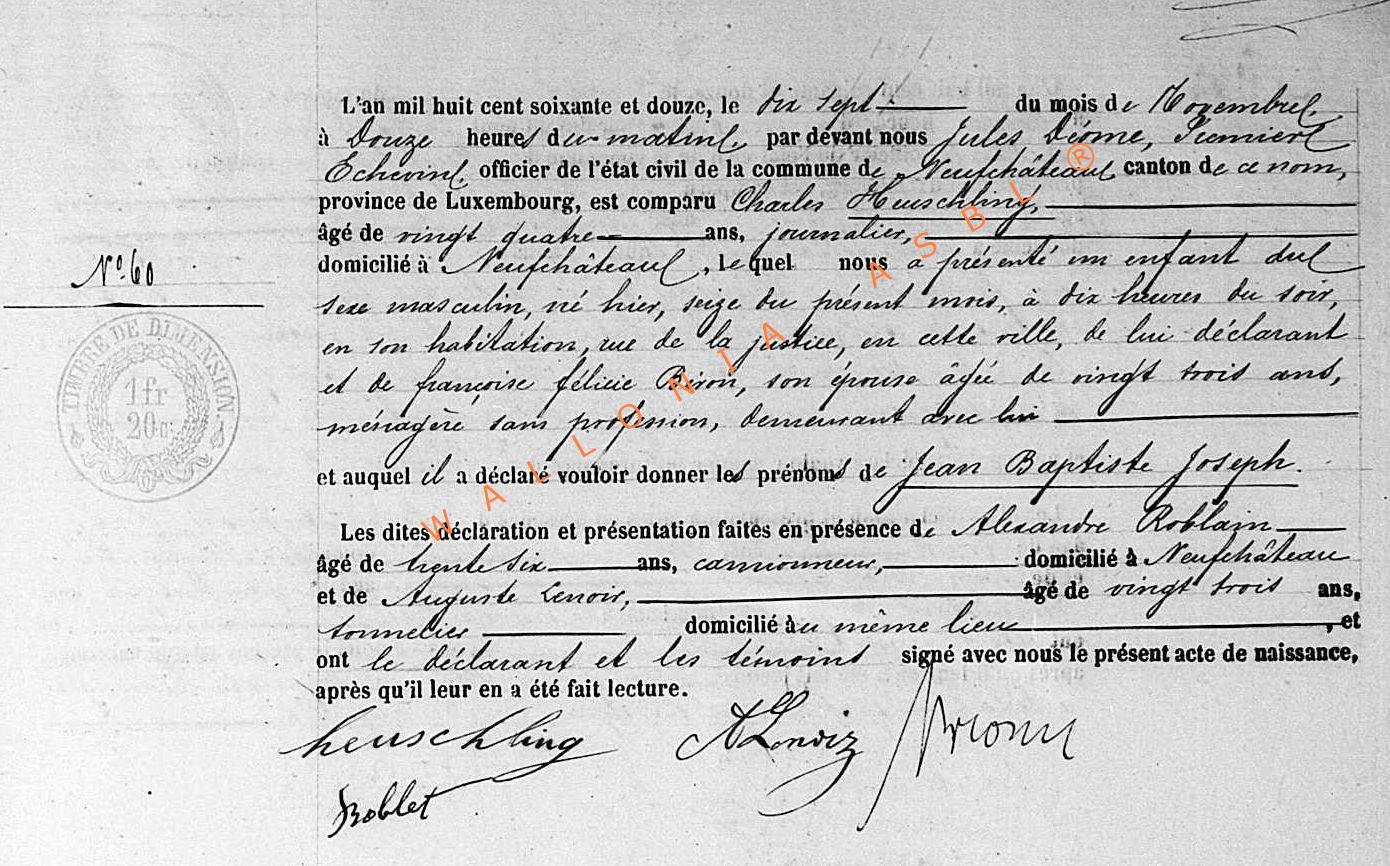 L'an mil huit cent soixante et douze, le dix sept du mois de Novembre
à Douze heures du matin, par devant nous Jules Déome, Premier
Echevin, officier de l'état civil de la commune de Neufchâteau canton de ce nom,
province de Luxembourg, est comparu Charles Heuschling,
âgé de vingt quatre ans, journalier,
domicilié à Neufchâteau, lequel nous a présenté un enfant du
No. 60
sexe masculin, né hier, seize du présent mois, à dix heures du soir,
en son habitation, rue de la justice, en cette ville, de lui déclarant
et de françoise félicie Biron, son épouse âgée de vingt trois ans,
ménagère sans profession, demeurant avec lui
TIMBRE DE DIMENSION
1 fr
20 c.
et auquel il a déclaré vouloir donner les prénoms de Jean Baptiste Joseph.
Les dites déclaration et présentation faites en présence de Alexandre Roblain
âgé de trente six ans, camionneur, domicilié à Neufchâteau
et de Auguste Lenoir, âgé de vingt trois ans,
tonnelier domicilié au même lieu, et
ont le déclarant et les témoins signé avec nous le présent acte de naissance,
après qu'il leur en a été fait lecture.
heuschling
Roblet
WALLONIA ASBL ®